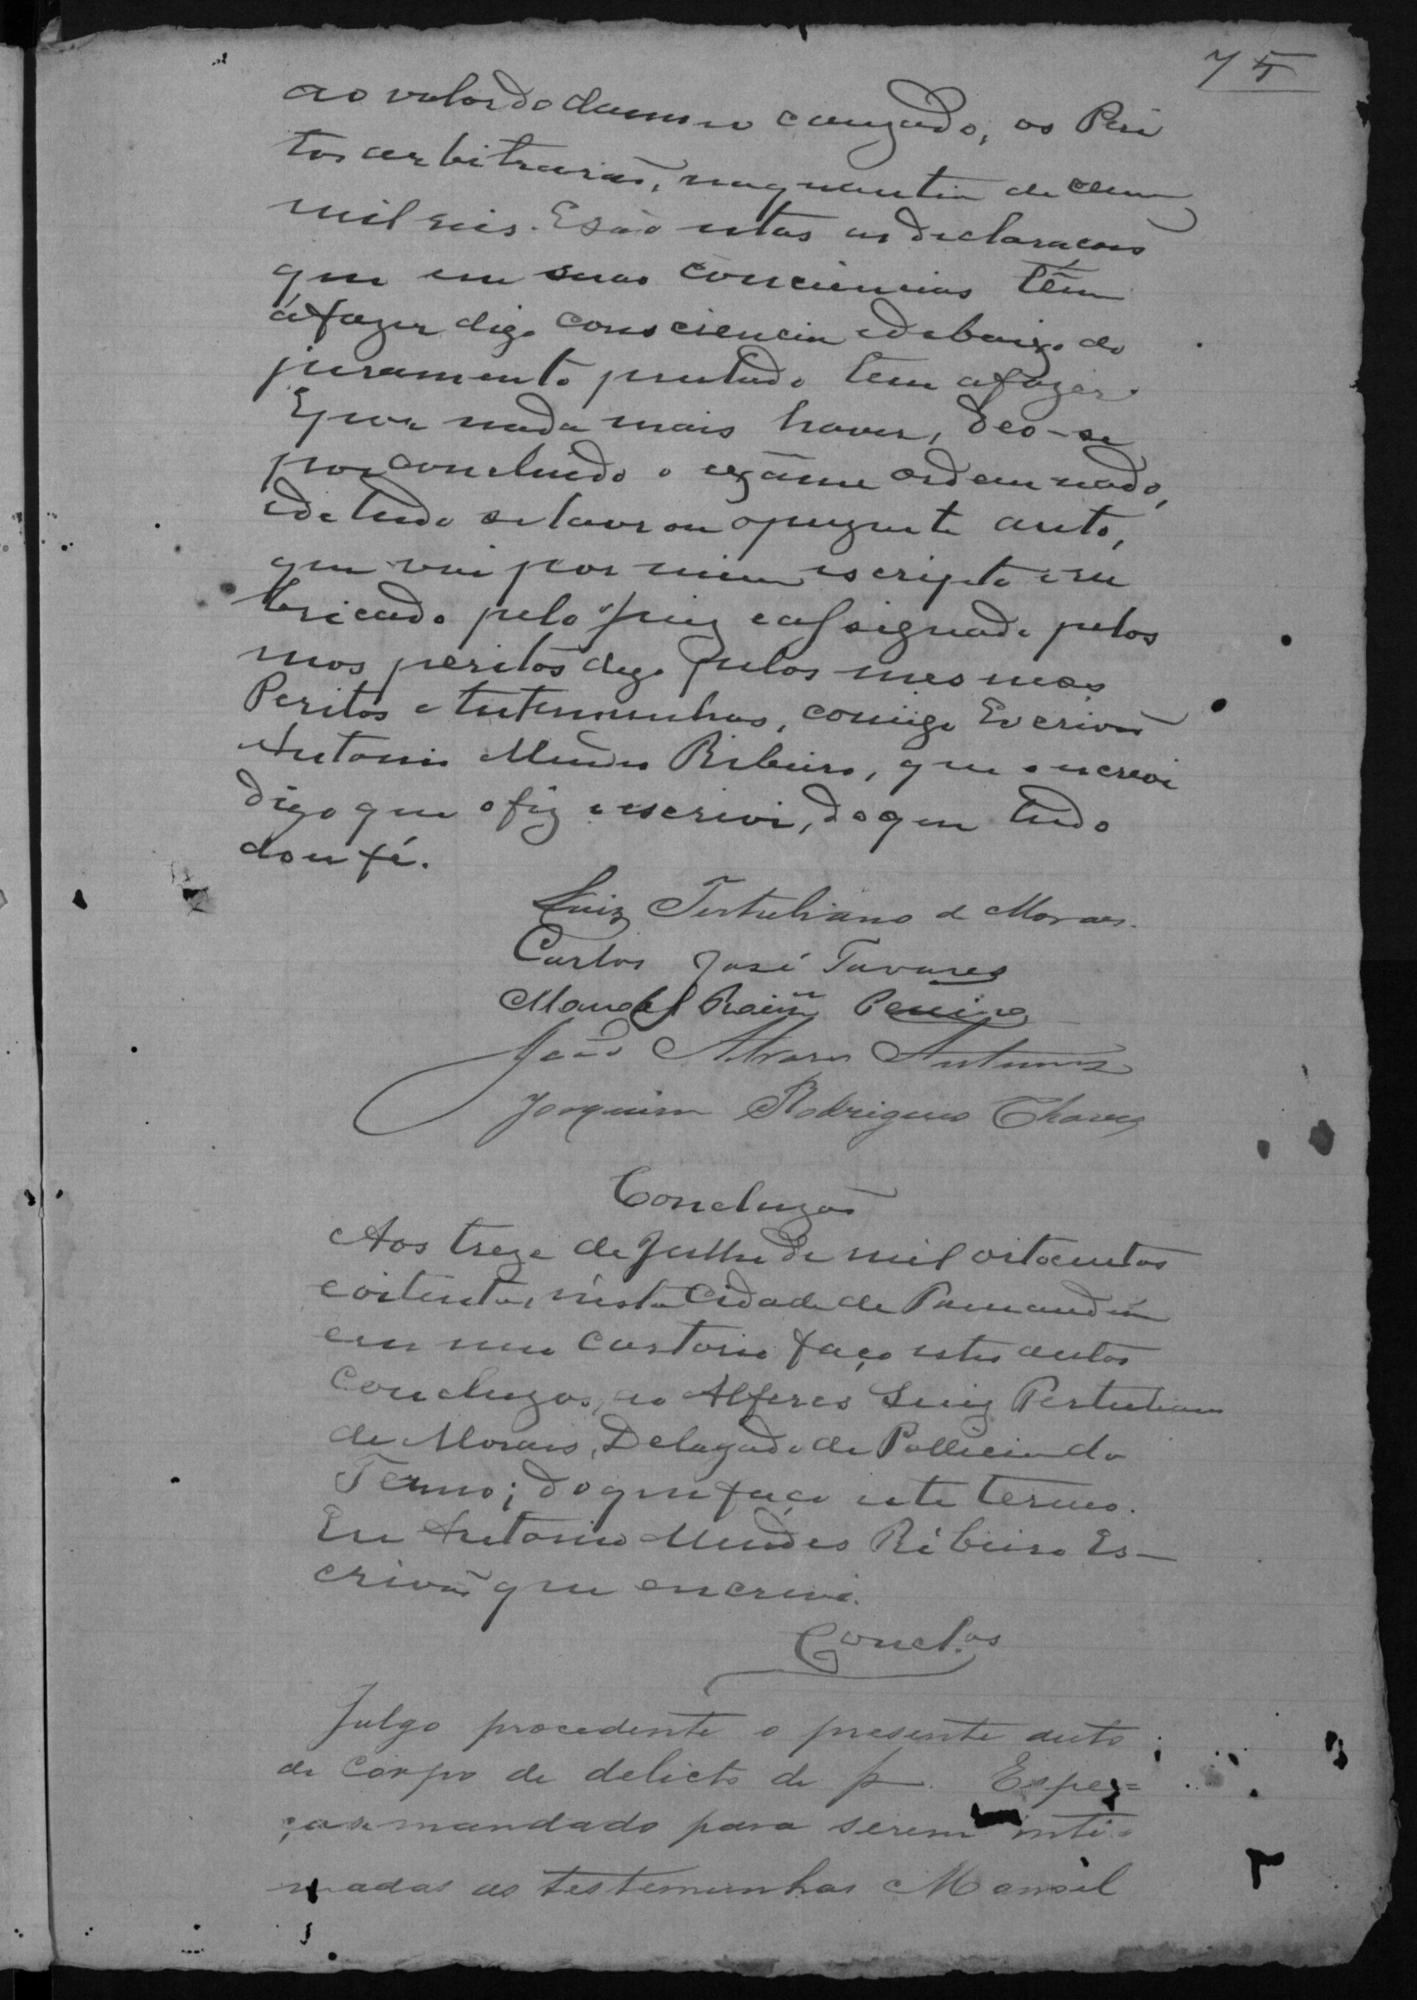 75
ao valor do damno cauzado, os Peri
tos arbitrarão, na quantia de cem
mil reis. E são estas as declarações
que em suas conciencias têm
á fazer digo consciencia e debaixo do
juramento prestado tem a fazer.
E por nada mais haver, deo-se
por concluido o ezâme ordennado,
e de tudo se lavrou o prezente auto,
que vai por mim escripto e ru
bricado pelo Juiz e assignado pelos
mos peritos digo pelos mesmos
Peritos e testemunhas, comigo Escrivão
Antonio Mendes Ribeiro, que o escrevi
digo que o fiz e escrevi, do que tudo
dou fé.
Luiz Tertuliano de Moraes.
Carlos José Tavares
Manoel Pereira
João Alvares Antunes
Joaquim Rodrigues Chaves
Concluzão
Aos treze de Julho de mil oitocentos
e oitenta, nésta Cidade de
em meu cartorio faço estes autos
concluzos, ao Alferes Luiz Tertuliano
de Moraes, Delegado de Policia do
Termo; do que faço este termo.
Eu Antonio Mendes Ribeiro Es-
crivão que escrevi.
Concl.os
Julgo procedente o presente auto
de corpo de delicto de f. Espes=
ça se mandado para serem inti-
madas as testemunhas Manoel